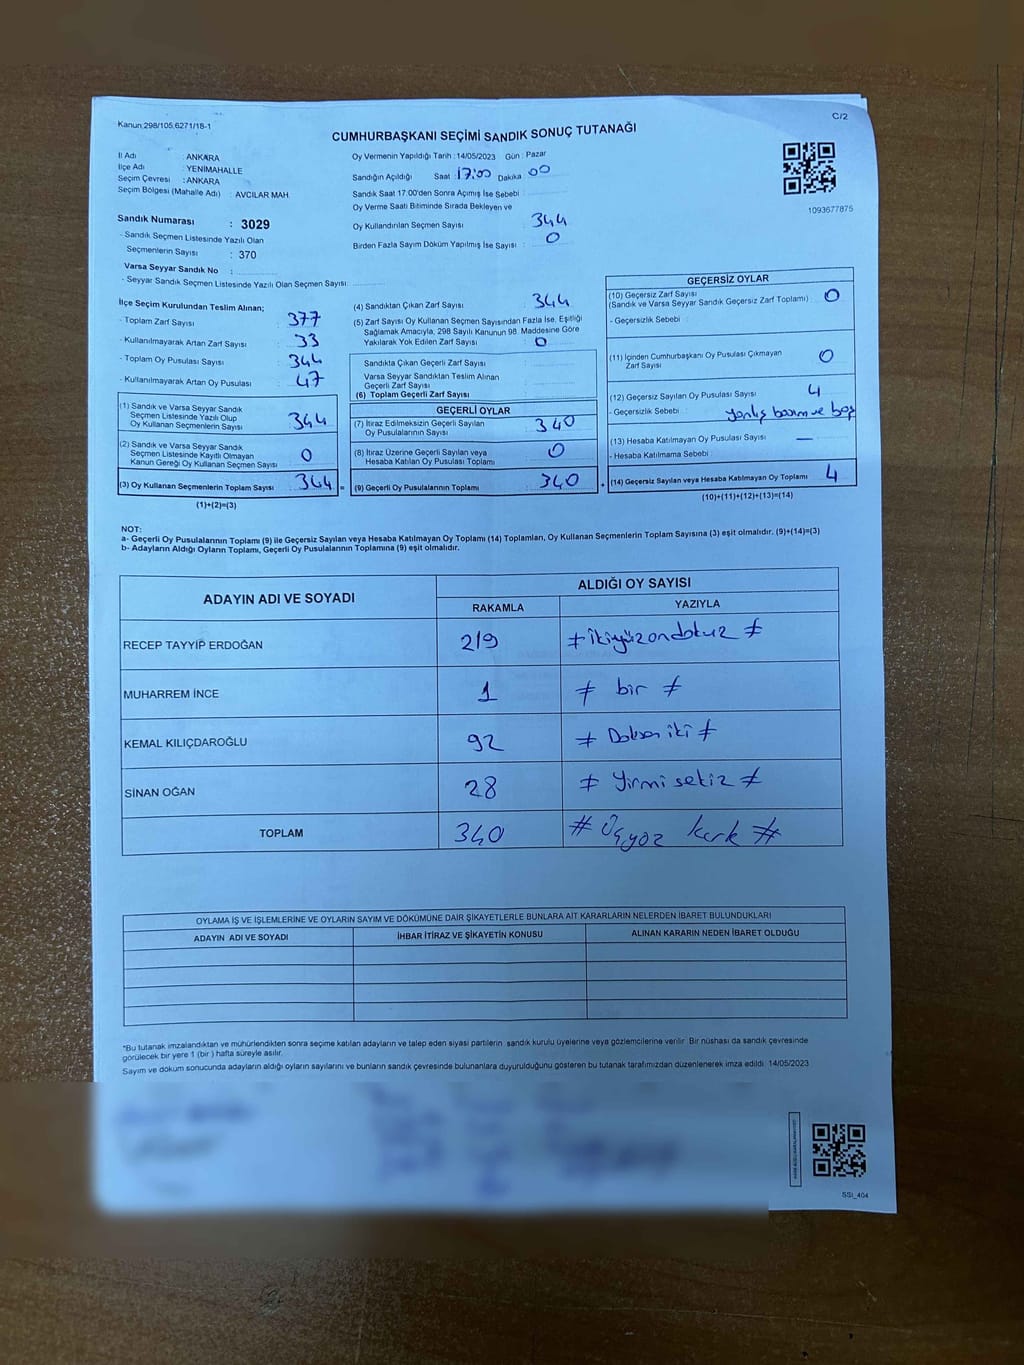 Kanun:298/105,6271/18-1
C/2
CUMHURBAŞKANI SEÇİMİ SANDIK SONUÇ TUTANAĞI
İl Adı : ANKARA
İlçe Adı : YENİMAHALLE
Seçim Çevresi : ANKARA
Seçim Bölgesi (Mahalle Adı) : AVCILAR MAH.
Sandık Numarası : 3029
- Sandık Seçmen Listesinde Yazılı Olan
Seçmenlerin Sayısı : 370
Varsa Seyyar Sandık No :
- Seyyar Sandık Seçmen Listesinde Yazılı Olan Seçmen Sayısı:
Oy Vermenin Yapıldığı Tarih : 14/05/2023 Gün : Pazar
Sandığın Açıldığı Saat : 17:00 Dakika 00
Sandık Saat 17.00'den Sonra Açımış İse Sebebi :
Oy Verme Saati Bitiminde Sırada Bekleyen ve
Oy Kullandırılan Seçmen Sayısı : 344
Birden Fazla Sayım Döküm Yapılmış İse Sayısı : 0
1093677875
İlçe Seçim Kurulundan Teslim Alınan;
- Toplam Zarf Sayısı : 377
- Kullanılmayarak Artan Zarf Sayısı : 33
- Toplam Oy Pusulası Sayısı : 344
- Kullanılmayarak Artan Oy Pusulası : 47
(1) Sandık ve Varsa Seyyar Sandık
Seçmen Listesinde Yazılı Olup
Oy Kullanan Seçmenlerin Sayısı : 344
(2) Sandık ve Varsa Seyyar Sandık
Seçmen Listesinde Kayıtlı Olmayan
Kanun Gereği Oy Kullanan Seçmen Sayısı : 0
(3) Oy Kullanan Seçmenlerin Toplam Sayısı : 344 =
(1)+(2)=(3)
(4) Sandıktan Çıkan Zarf Sayısı : 344
(5) Zarf Sayısı Oy Kullanan Seçmen Sayısından Fazla İse, Eşitliği
Sağlamak Amacıyla, 298 Sayılı Kanunun 98. Maddesine Göre
Yakılarak Yok Edilen Zarf Sayısı : 0
Sandıkta Çıkan Geçerli Zarf Sayısı :
Varsa Seyyar Sandıktan Teslim Alınan
Geçerli Zarf Sayısı :
(6) Toplam Geçerli Zarf Sayısı :
GEÇERLİ OYLAR
(7) İtiraz Edilmeksizin Geçerli Sayılan
Oy Pusulalarının Sayısı : 340
(8) İtiraz Üzerine Geçerli Sayılan veya
Hesaba Katılan Oy Pusulaları Toplamı : 0
(9) Geçerli Oy Pusulalarının Toplamı : 340 +
GEÇERSİZ OYLAR
(10) Geçersiz Zarf Sayısı
(Sandık ve Varsa Seyyar Sandık Geçersiz Zarf Toplamı) : 0
- Geçersizlik Sebebi :
(11) İçinden Cumhurbaşkanı Oy Pusulası Çıkmayan
Zarf Sayısı : 0
(12) Geçersiz Sayılan Oy Pusulası Sayısı : 4
- Geçersizlik Sebebi : yanlış basım ve boş
(13) Hesaba Katılmayan Oy Pusulası Sayısı : —
- Hesaba Katılmama Sebebi :
(14) Geçersiz Sayılan veya Hesaba Katılmayan Oy Toplamı : 4
(10)+(11)+(12)+(13)=(14)
NOT:
a- Geçerli Oy Pusulalarının Toplamı (9) ile Geçersiz Sayılan veya Hesaba Katılmayan Oy Toplamı (14) Toplamları, Oy Kullanan Seçmenlerin Toplam Sayısına (3) eşit olmalıdır. (9)+(14)=(3)
b- Adayların Aldığı Oyların Toplamı, Geçerli Oy Pusulalarının Toplamına (9) eşit olmalıdır.
ADAYIN ADI VE SOYADI ALDIĞI OY SAYISI
RAKAMLA YAZIYLA
RECEP TAYYİP ERDOĞAN 219 # ikiyüzondokuz #
MUHARREM İNCE 1 # bir #
KEMAL KILIÇDAROĞLU 92 # Doksan iki #
SİNAN OĞAN 28 # Yirmi sekiz #
TOPLAM 340 # Üçyüz kırk #
OYLAMA İŞ VE İŞLEMLERİNE VE OYLARIN SAYIM VE DÖKÜMÜNE DAİR ŞİKAYETLERLE BUNLARA AİT KARARLARIN NELERDEN İBARET BULUNDUKLARI
ADAYIN ADI VE SOYADI İHBAR İTİRAZ VE ŞİKAYETİN KONUSU ALINAN KARARIN NEDEN İBARET OLDUĞU
*Bu tutanak imzalandıktan ve mühürlendikten sonra seçime katılan adayların ve talep eden siyasi partilerin sandık kurulu üyelerine veya gözlemcilerine verilir. Bir nüshası da sandık çevresinde
görülecek bir yere 1 (bir) hafta süreyle asılır.
Sayım ve döküm sonucunda adayların aldığı oyların sayılarını ve bunların sandık çevresinde bulunanlara duyurulduğunu gösteren bu tutanak tarafımızdan düzenlenerek imza edildi. 14/05/2023
SSI_404